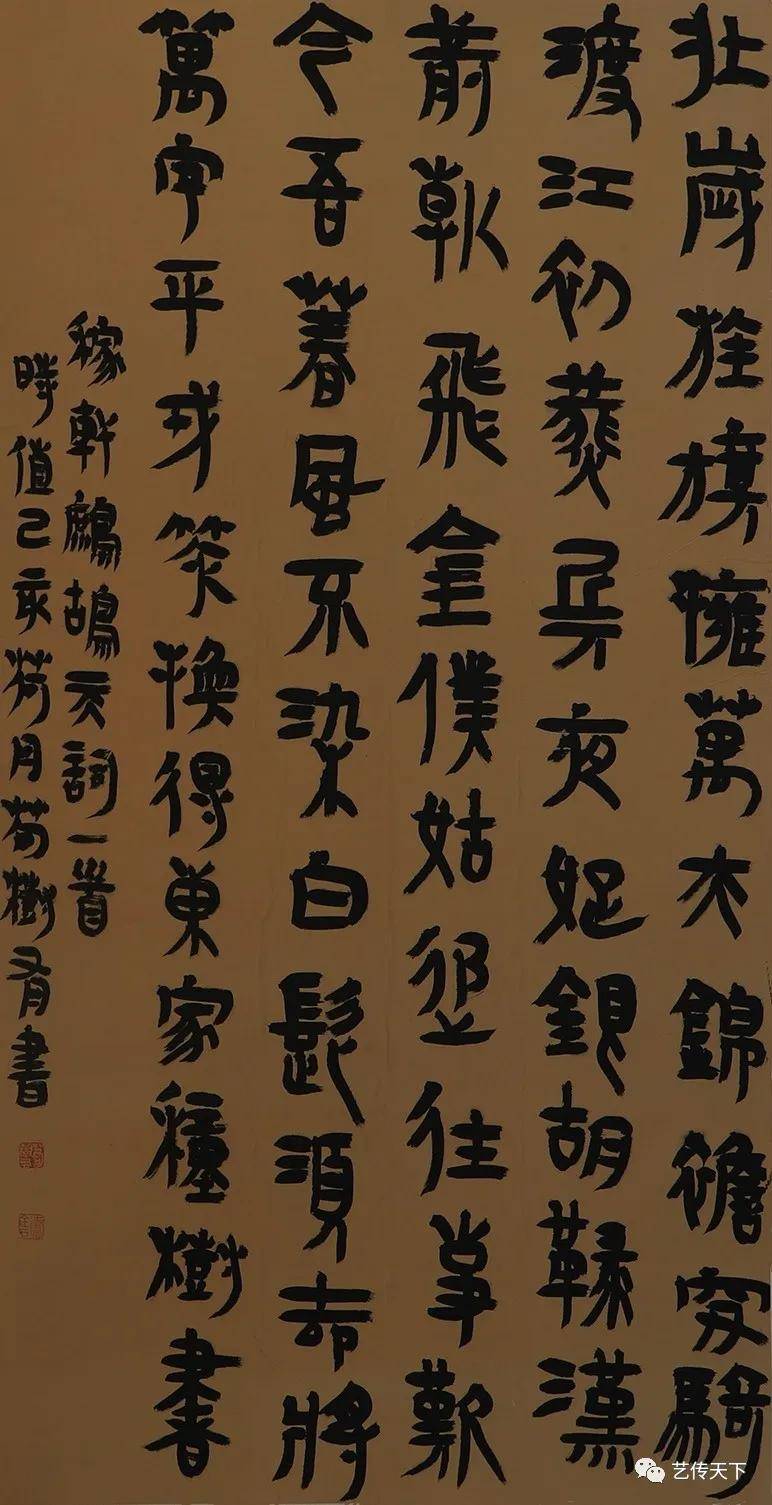 壯歲旌旗擁萬夫錦襜突騎
渡江初燕兵夜娖銀胡䩮漢
箭朝飛金僕姑追往事歎
今吾春風不染白髭須却將
萬字平戎策換得東家種樹書
稼軒鷓鴣天詞一首
時值己亥荷月樹書
艺传天下